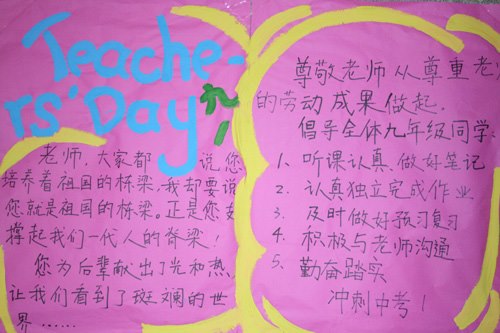 Teache-
rs' Day
九
老师，大家都 说您
培养着祖国的栋梁。我却要说
您就是祖国的栋梁。正是您支
撑起我们一代人的脊梁！
您为后辈献出了光和热，
让我们看到了斑斓的世
界……
尊敬老师从尊重老
的劳动成果做起.
倡导全体九年级同学
1、听课认真,做好笔记
2、认真独立完成作业
3、及时做好预习复习
4、积极与老师沟通
5、勤奋踏实
冲刺中考！